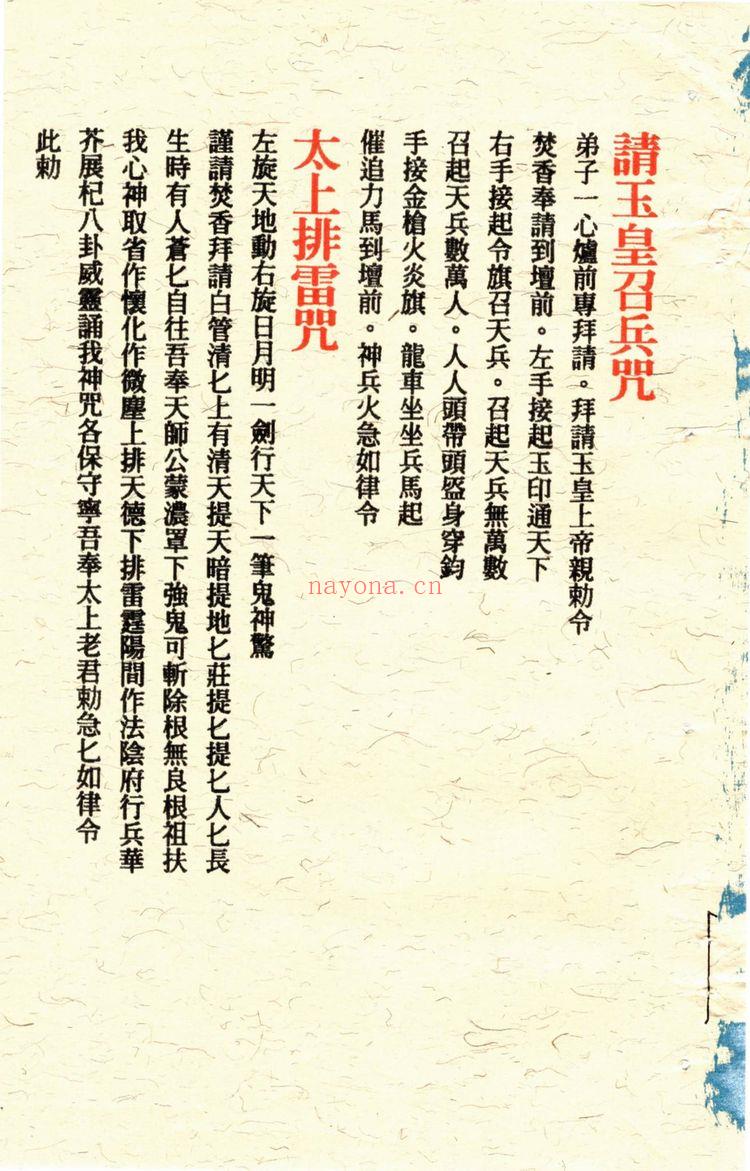 請玉皇召兵咒
弟子一心爐前專拜請。拜請玉皇上帝親勅令
焚香奉請到壇前。左手接起玉印通天下
右手接起令旗召天兵。召起天兵無萬數
召起天兵數萬人。人人頭帶頭盔身穿鈎
手接金槍火炎旗。龍車坐坐兵馬起
催追力馬到壇前。神兵火急如律令
太上排雷咒
左旋天地動右旋日月明一劍行天下一筆鬼神驚
謹請焚香拜請白管清匕上有清天提天暗提地匕莊提匕提匕人匕長
生時有人蒼匕自往吾奉天師公蒙濃罩下強鬼可斬除根無良根祖扶
我心神取省作懷化作微塵上排天德下排雷霆陽間作法陰府行兵華
芥展杞八卦威靈誦我神咒各保守寧吾奉太上老君勅急匕如律令
此勅
nayona.cn